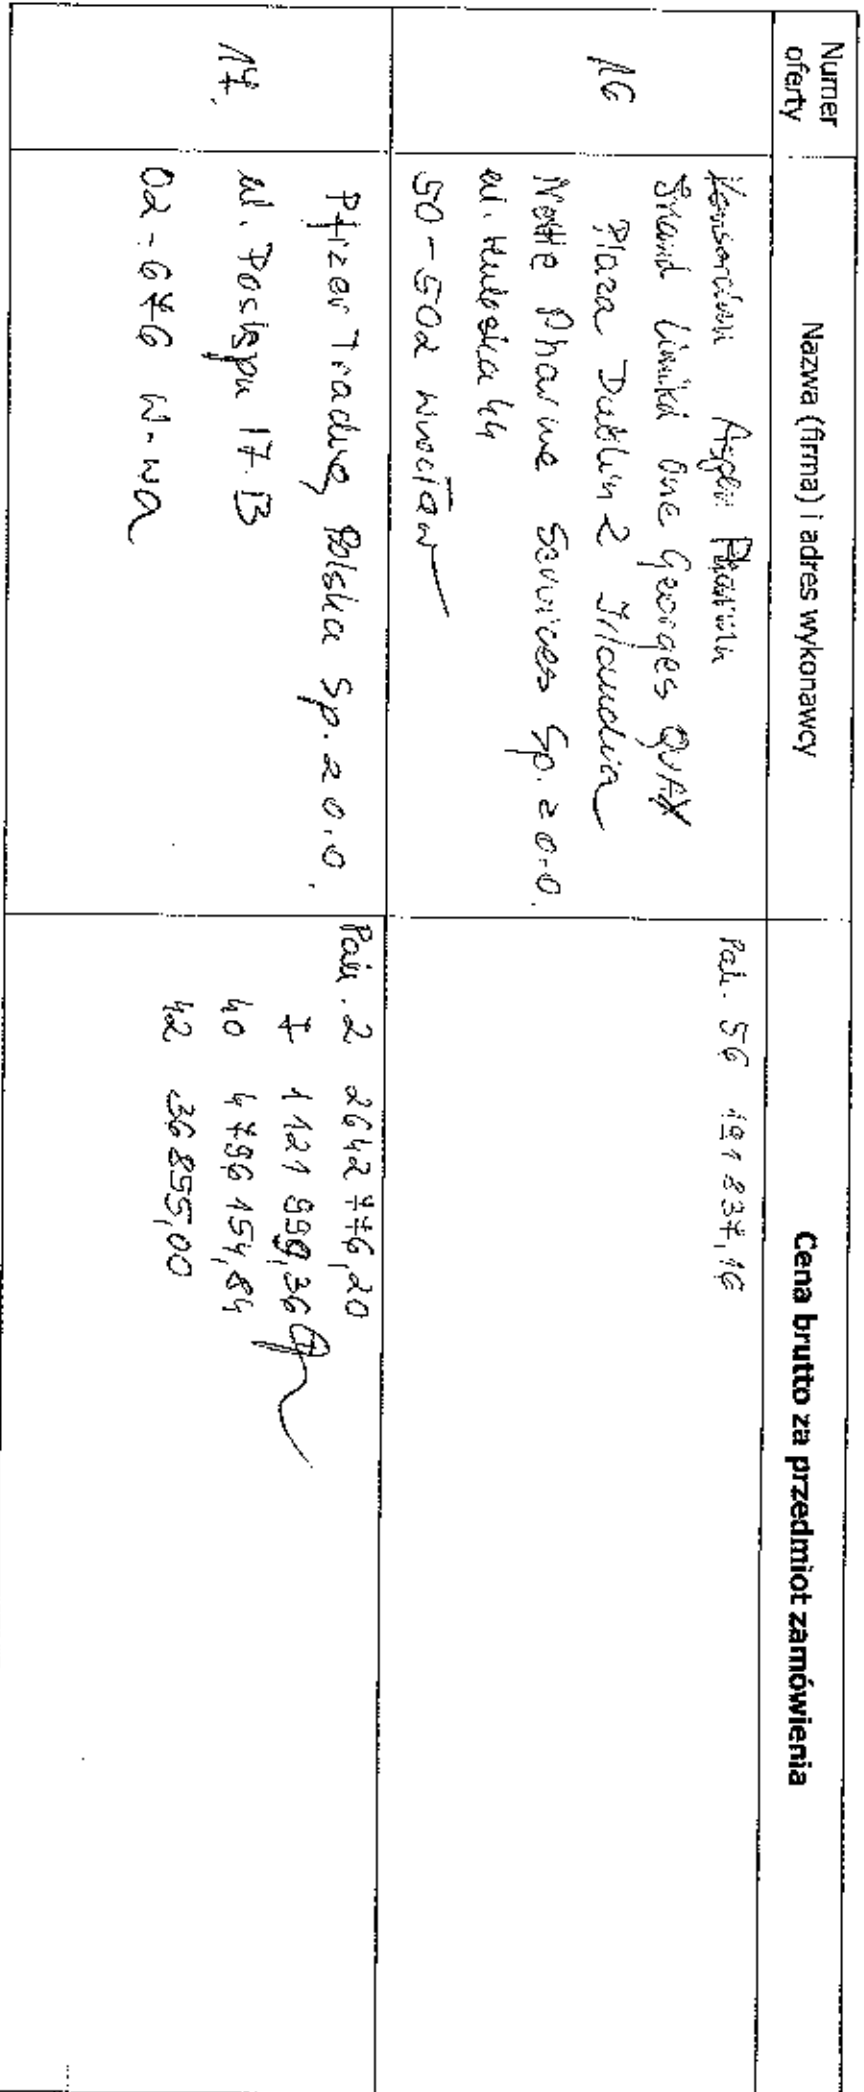 Numer
oferty
Nazwa (firma) i adres wykonawcy
Cena brutto za przedmiot zamówienia
16
Konsorcjum Aspen Pharma
Limited One Georges QUAY
Plaza Dublin 2 Irlandia
Nettle Pharma Services Sp. z o.o.
ul. Hubska 44
50-502 Wrocław
Pak. 56 191 837,16
17.
Pfizer Trading Polska Sp. z o.o.
ul. Postępu 17 B
02-676 W-wa
Pak. 2 2642 776,20
7 1 121 999,36
40 4 796 154,84
42 36 855,00